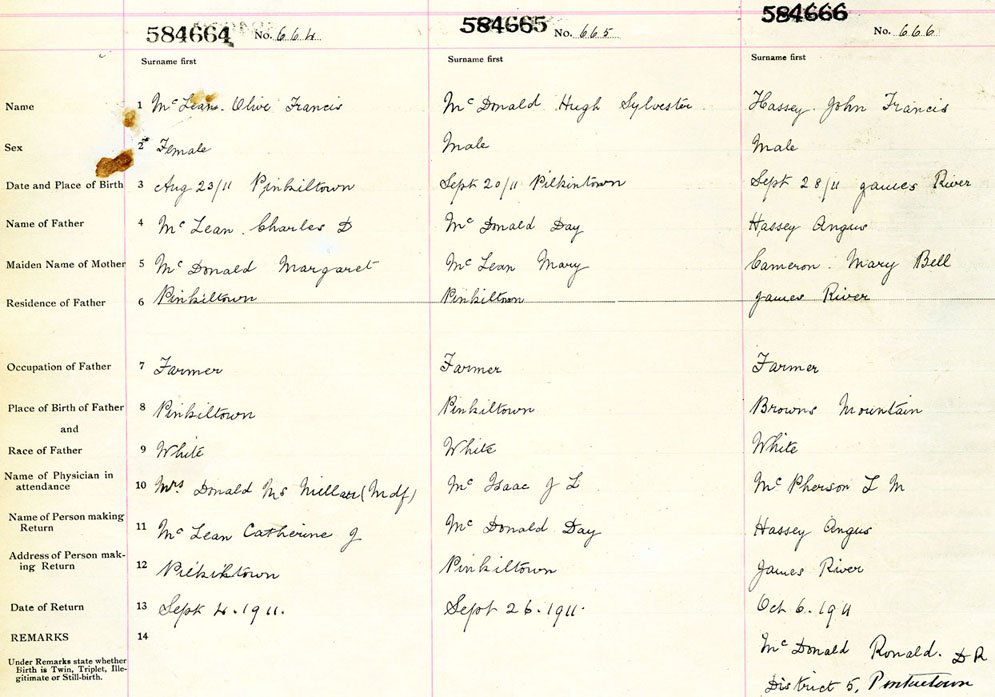 584664 No. 664 584665 No. 665 584666 No. 666
Surname first Surname first Surname first
Name 1 McLean. Olive Francis McDonald Hugh Sylvester Hassey John Francis
Sex 2 Female Male Male
Date and Place of Birth 3 Aug 23/11 Pinkiltown Sept 20/11 Pilkintown Sept 28/11 James River
Name of Father 4 McLean. Charles D McDonald Day Hassey Angus
Maiden Name of Mother 5 McDonald Margaret McLean Mary Cameron. Mary Bell
Residence of Father 6 Pinkiltown Pinkiltown James River
Occupation of Father 7 Farmer Farmer Farmer
Place of Birth of Father 8 Pinkiltown Pinkiltown Browns Mountain
and
Race of Father 9 White White White
Name of Physician in
attendance 10 Mrs Donald (Mdf) McIsaac J L McPherson L M
Name of Person making
Return 11 McLean Catherine J McDonald Day Hassey Angus
Address of Person mak-
ing Return 12 Pinkiltown James River
Date of Return 13 Sept 4. 1911. Sept 26. 1911. Oct 6. 1911
REMARKS 14
Under Remarks state whether
Birth is Twin, Triplet, Ille-
gitimate or Still-birth.
McDonald Ronald. D R
District 5,